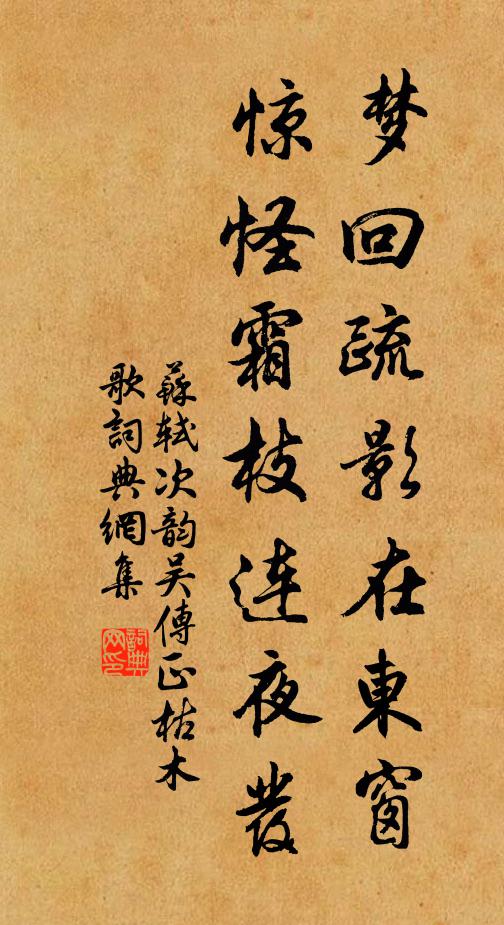 梦回疏影在東窗
惊怪霜枝連夜發
蘇軾次韵吴傳正枯木
歌詞典網集
詞典
网印